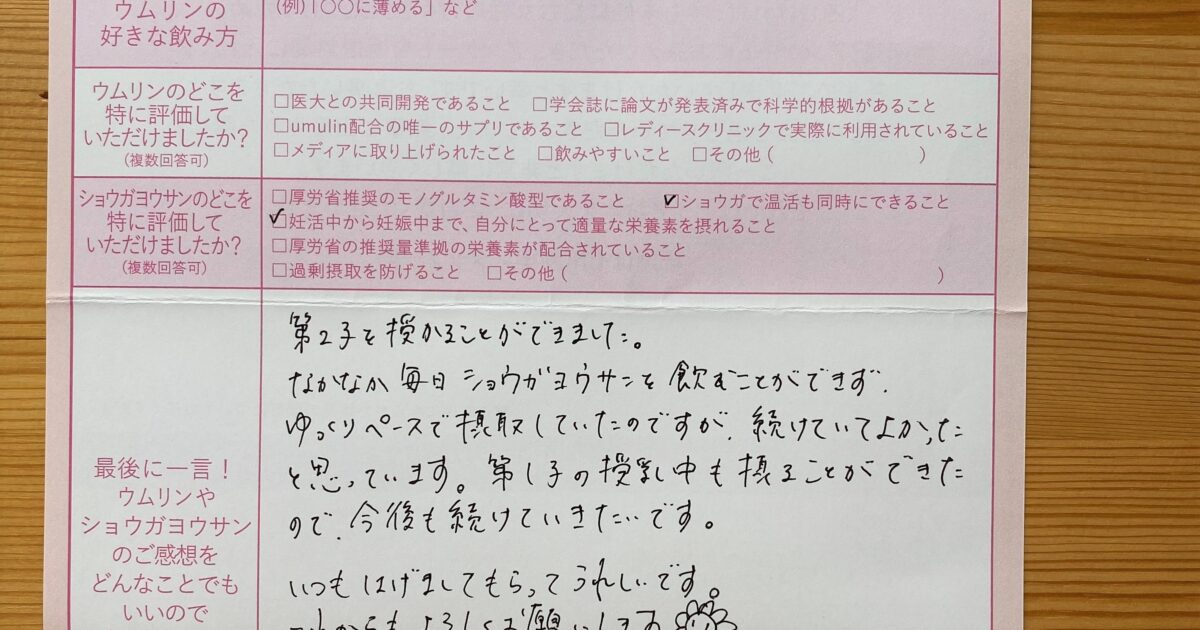 ウムリンの
好きな飲み方
(例)「〇〇に薄める」など
ウムリンのどこを
特に評価して
いただけましたか?
(複数回答可)
□医大との共同開発であること □学会誌に論文が発表済みで科学的根拠があること
□umulin配合の唯一のサプリであること □レディースクリニックで実際に利用されていること
□メディアに取り上げられたこと □飲みやすいこと □その他 ( )
ショウガヨウサンのどこを
特に評価して
いただけましたか?
(複数回答可)
□厚労省推奨のモノグルタミン酸型であること ☑ショウガで温活も同時にできること
☑妊活中から妊娠中まで、自分にとって適量な栄養素を摂れること
□厚労省の推奨量準拠の栄養素が配合されていること
□過剰摂取を防げること □その他 ( )
最後に一言!
ウムリンや
ショウガヨウサン
のご感想を
どんなことでも
いいので
第2子を授かることができました。
なかなか毎日ショウガヨウサンを飲むことができず、
ゆっくりペースで摂取していたのですが、続けていてよかった
と思っています。第1子の授乳中も摂ることができた
ので、今後も続けていきたいです。
いつもはげましてもらってうれしいです。
これからもよろしくお願いします